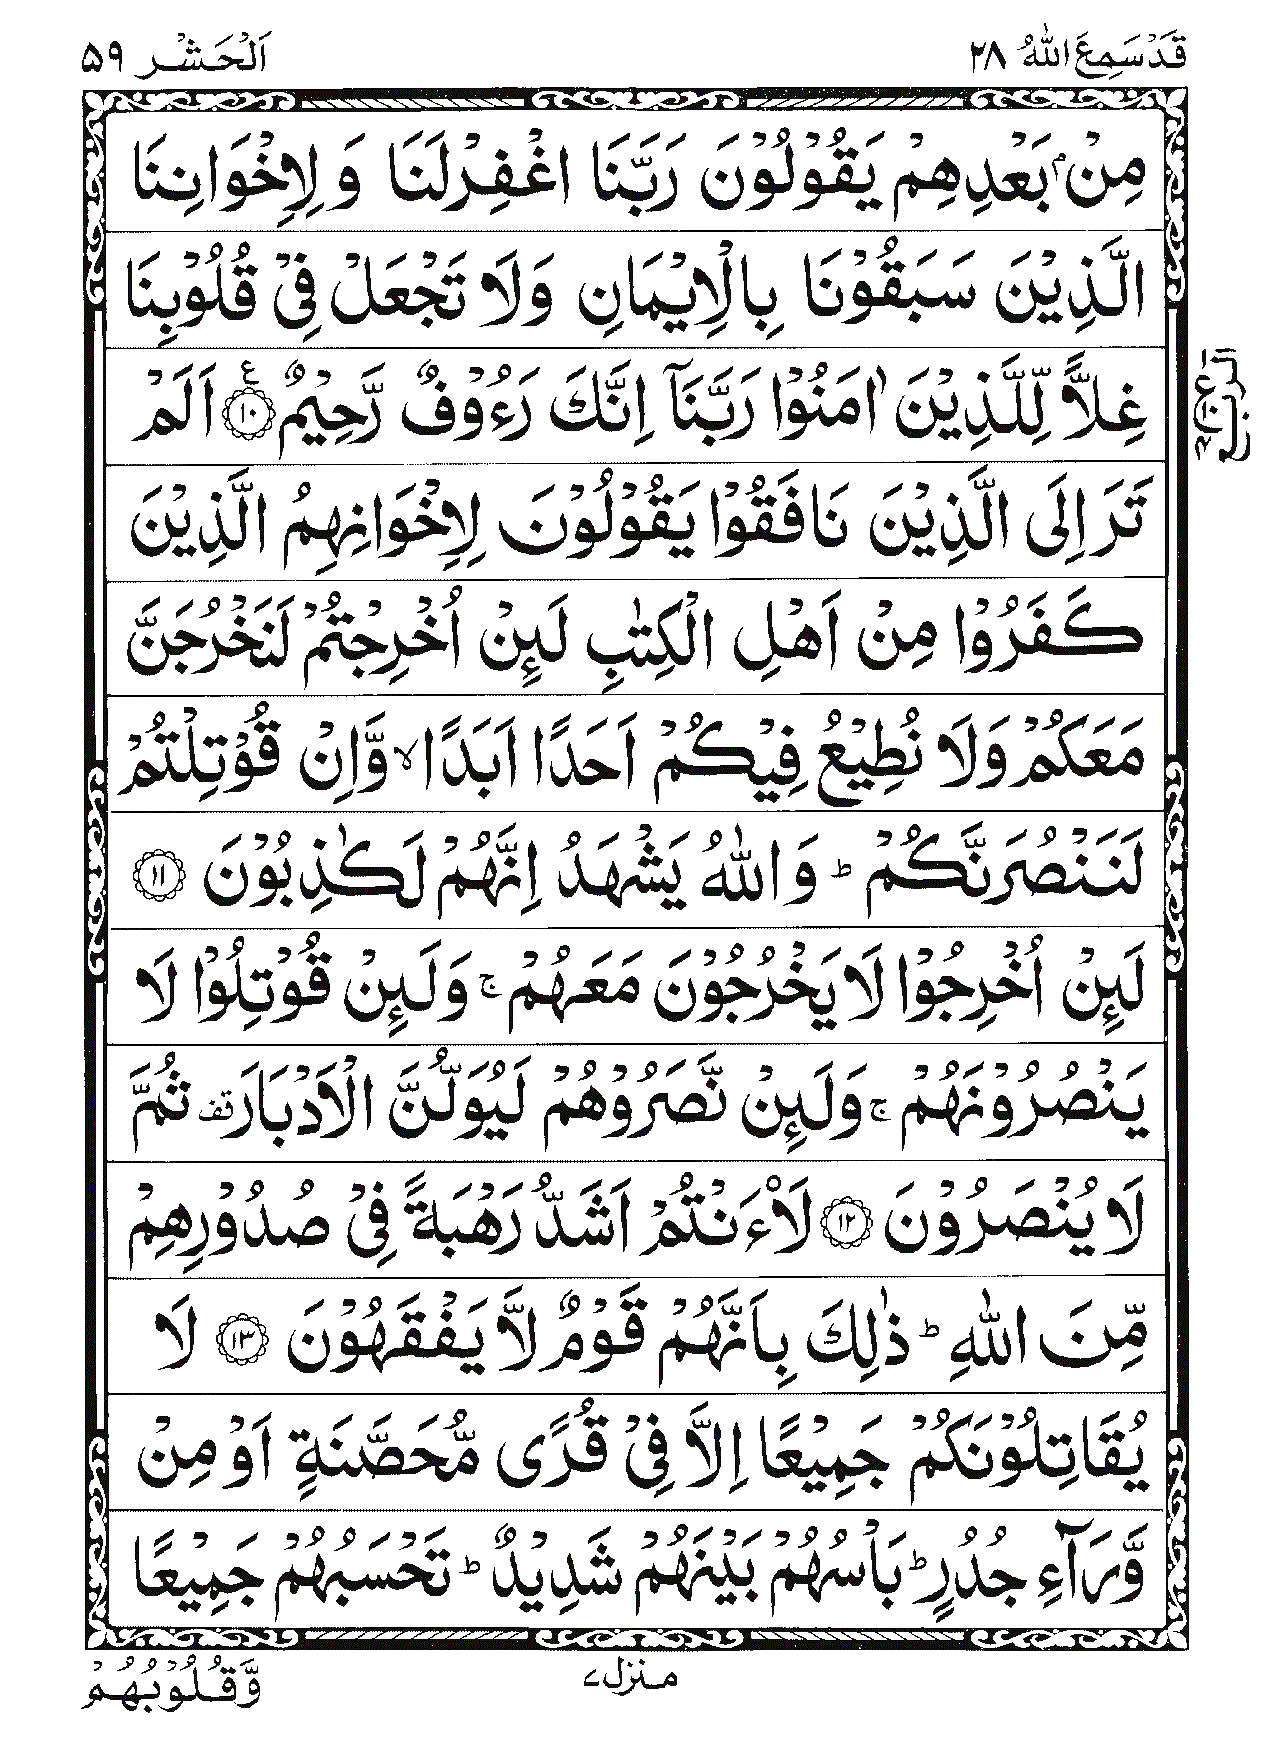 قَدْسَمِعَ اللّٰهُ ٢٨
اَلْحَشْر ٥٩
مِنْۢ بَعْدِهِمْ يَقُوْلُوْنَ رَبَّنَا اغْفِرْلَنَا وَلِاِخْوَانِنَا
الَّذِيْنَ سَبَقُوْنَا بِالْاِيْمَانِ وَلَا تَجْعَلْ فِيْ قُلُوْبِنَا
غِلًّا لِّلَّذِيْنَ اٰمَنُوْا رَبَّنَآ اِنَّكَ رَءُوْفٌ رَّحِيْمٌ ۝١٠ ع اَلَمْ
تَرَ اِلَى الَّذِيْنَ نَافَقُوْا يَقُوْلُوْنَ لِاِخْوَانِهِمُ الَّذِيْنَ
كَفَرُوْا مِنْ اَهْلِ الْكِتٰبِ لَىِٕنْ اُخْرِجْتُمْ لَنَخْرُجَنَّ
مَعَكُمْ وَلَا نُطِيْعُ فِيْكُمْ اَحَدًا اَبَدًا ۙ وَّاِنْ قُوْتِلْتُمْ
لَنَنْصُرَنَّكُمْ ؕ وَاللّٰهُ يَشْهَدُ اِنَّهُمْ لَكٰذِبُوْنَ ۝١١
لَىِٕنْ اُخْرِجُوْا لَا يَخْرُجُوْنَ مَعَهُمْ ۚ وَلَىِٕنْ قُوْتِلُوْا لَا
يَنْصُرُوْنَهُمْ ۚ وَلَىِٕنْ نَّصَرُوْهُمْ لَيُوَلُّنَّ الْاَدْبَارَ قف ثُمَّ
لَا يُنْصَرُوْنَ ۝١٢ لَاْاَنْتُمْ اَشَدُّ رَهْبَةً فِيْ صُدُوْرِهِمْ
مِّنَ اللّٰهِ ؕ ذٰلِكَ بِاَنَّهُمْ قَوْمٌ لَّا يَفْقَهُوْنَ ۝١٣ لَا
يُقَاتِلُوْنَكُمْ جَمِيْعًا اِلَّا فِيْ قُرًى مُّحَصَّنَةٍ اَوْ مِنْ
وَّرَآءِ جُدُرٍ ؕ بَاْسُهُمْ بَيْنَهُمْ شَدِيْدٌ ؕ تَحْسَبُهُمْ جَمِيْعًا
منزل ٧
وَّقُلُوْبُهُمْ